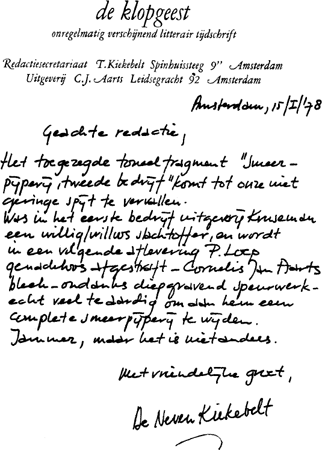 de klopgeest
onregelmatig verschijnend litterair tijdschrift
Redactiesecretariaat T. Kiekebelt Spinhuissteeg 9" Amsterdam
Uitgeverij C.J. Aarts Leidsegracht 92 Amsterdam
Amsterdam, 15/I/'78
Geachte redactie,
Het toegezegde toneelfragment "Smeer-
pijperij, tweede bedrijf" komt tot onze niet
geringe spijt te vervallen.
Was in het eerste bedrijf uitgeverij Kruseman
een willig/willoos slachtoffer, en wordt
in een volgende aflevering P. Loeb
genadeloos afgestraft - Cornelis Jan Aarts
bleek - ondanks diepgravend speurwerk -
echt veel te aardig om aan hem een
complete smeerpijperij te wijden.
Jammer, maar het is niet anders.
Met vriendelijke groet,
De Neven Kiekebelt